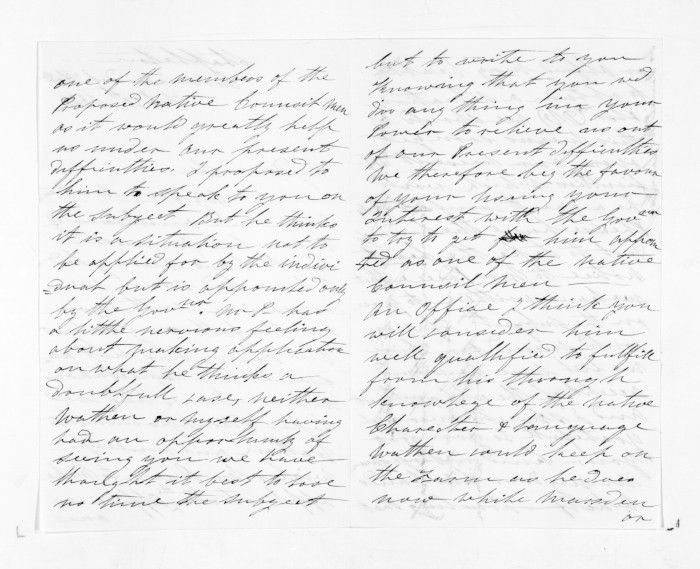 one of the members of the
Proposed Native Council Men
as it would greatly help
us under our present
difficulties. I proposed to
him to speak to you on
the subject. But he thinks
it is a situation not to
be applied for by the indivi
dual but is appointed only
by the Govnor. Mr P. has
a little nervous feeling
about making application
on what he thinks a
doubtfull case, neither
Wathen or myself having
had an opportunity of
seeing you we have
thought it best to lose
no time the subject
but to write to you
Knowing that you wd
do any thing in your
Power to relieve us out
of our Present difficulties
We therefore beg the favour
of your using your
Interest with the Governor
to try to get him appoin
ted as one of the native
Council Men —
An Office I think you
will consider him
well quallified to fullfill
from his through
knowlege of the native
Charecter & Language
Wathen could keep on
the Farm as he does
now while Marsden
or